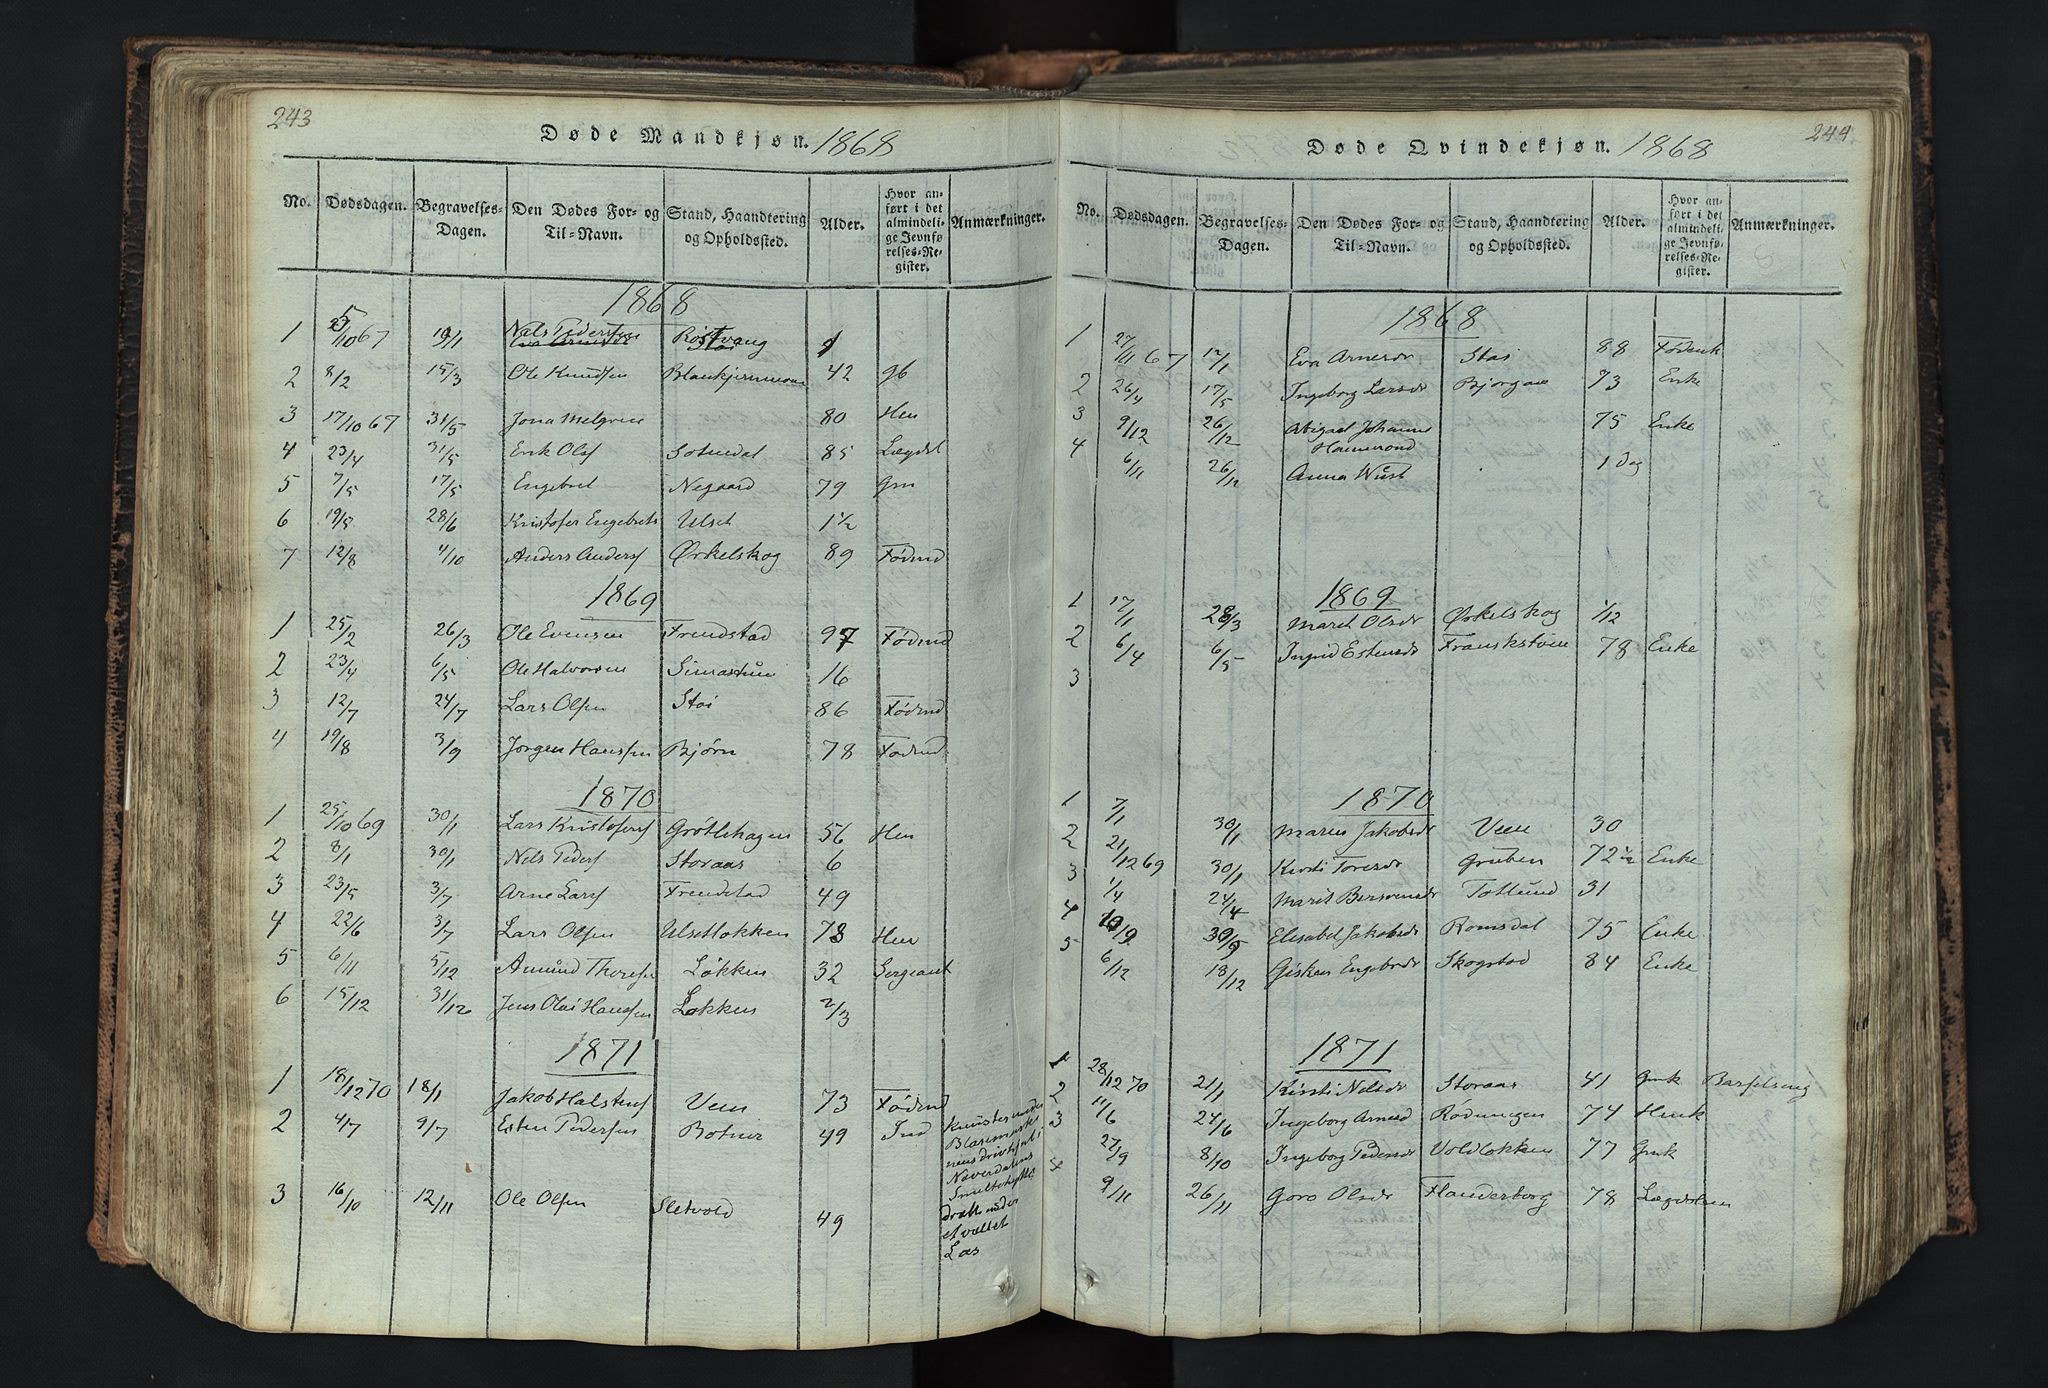 243
Døde Mandkjøn. 1868
No. Dødsdagen. Begravelses-Dagen. Den Dødes For- og Til-Navn. Stand, Haandtering og Opholdssted. Alder. Hvor anført i det almindelige Jevnførelses-Register. Anmærkninger.
1868
1 /10 67 /1 Nils Pedersen Røstvang
2 8/2 15/3 Ole Knudsen 42 gb
3 17/10 67 31/5 Jona Melgren 80
4 23/4 31/5 Erik Ols 85 Lægdsl
5 7/5 17/5 Engebret Negaard 79 Gm
6 19/5 28/6 Kristofer Engebrets Ulset 1 1/2
7 12/8 4/10 Anders Anders Ørkelskog 89 Fødmd
1869
1 25/2 26/3 Ole Evensen Frendstad Fødmd
2 23/4 6/5 Ole Halvorsen 16
3 12/7 24/7 Lars Olsen Stai 86 Fødmd
4 19/8 3/9 Jørgen Hanssen Bjørn 78 Fødmd
1870
1 25/10 69 30/1 Lars Kristofers Grøtlihagen 56
2 8/1 30/1 Nils Peders Storaas 6
3 23/5 3/7 Arne Lars Frendstad 49
4 22/6 3/7 Lars Olsen Ulsetløkken 73
5 6/11 5/12 Amund Thoresen Løkken 32 Sergeant
6 15/12 31/12 Jens Olai Hansen Løkken 2/3
1871
1 18/12 70 18/1 Jakob Halstens Veen 73 Fødmd
2 4/7 9/7 Esten Pedersen 49 Ind Knust under
3 16/10 12/11 Ole Olsen Sletvold 49 dræbt under
et væltet
Læs
244
Døde Qvindekjøn. 1868
No. Dødsdagen. Begravelses-Dagen. Den Dødes For- og Til-Navn. Stand, Haandtering og Opholdssted. Alder. Hvor anført i det almindelige Jevnførelses-Register. Anmærkninger.
1868
1 27/11 67 12/1 Eva Arnesdr Stai 88
2 26/4 17/5 Ingeborg Larsdr Bjorgan 73 Enke
3 9/12 26/12 Abigael Johanne 75 Enke
Hammond
4 6/11 26/12 Anna Wüst 1 Dag
1869
1 17/1 28/3 Marit Olsdr Ørkelskog 1/12
2 6/4 6/5 Ingrid Estensdr 78 Enke
3
1870
1 7/1 30/1 Maren Jakobsdr Veen 30
2 21/12 69 30/1 Kirsti Toresdr Gruben 72 1/2 Enke
3 1/4 24/4 Marit Bersvendr Totlund 31
4 10/9 30/9 Elisabet Jakobsdr Romsdal 75 Enke
5 6/12 18/12 Gisken Engebrdr Skogstad 84 Enke
1871
1 28/12 70 21/1 Kirsti Nelsdr Storaas 41 Gmk Barselseng
2 11/6 24/6 Ingeborg Arnesd Rødningen 74
3 27/9 8/10 Ingeborg Pedersdr Voldløkken 77 Gmk
4 9/11 26/11 Goro Olsdr Flanderborg 78 Lægdslem